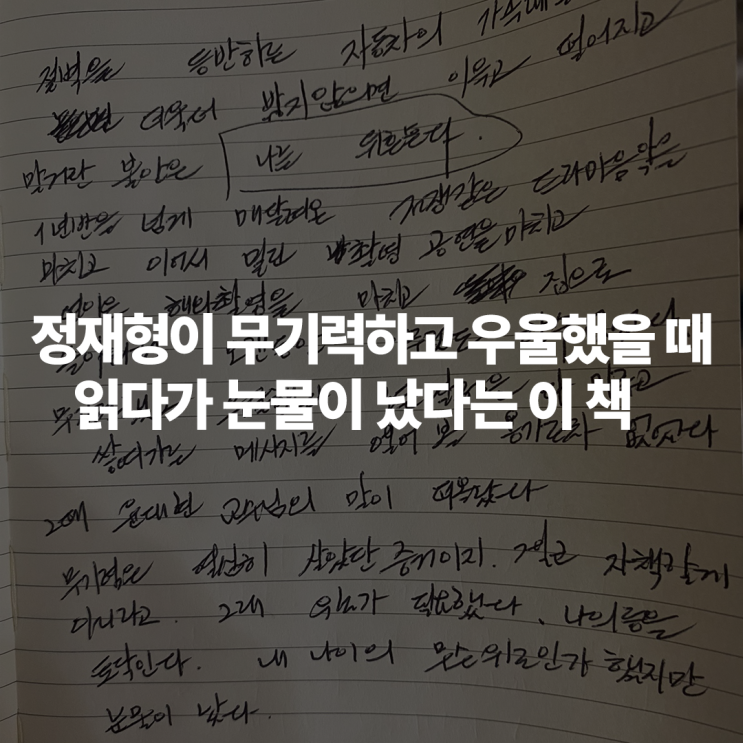 절벽을 등반하는 자동차의 가속페
더욱더 밟지않으면 이윽고 떨어지고
말거란 불안은 나를 뒤흔든다.
1년반을 넘게 매달려온 드라마음악을
마치고 이어서 밀린 촬영 공연을 마치고
해외촬영을 마치고 집으로
정재형이 무기력하고 우울했을 때
읽다가 눈물이 났다는 이 책
쌓여가는 메시지를 열어 볼 용기조차 없었다
그때 윤대현 교수님의 말이 떠올랐다
무기력은 열심히 살았단 증거이지. 결코 자책할게
아니라고. 그래 위로가 필요했었다. 나의 등을
토닥인다. 내 나이의 무슨 위로인가 했지만
눈물이 났다.